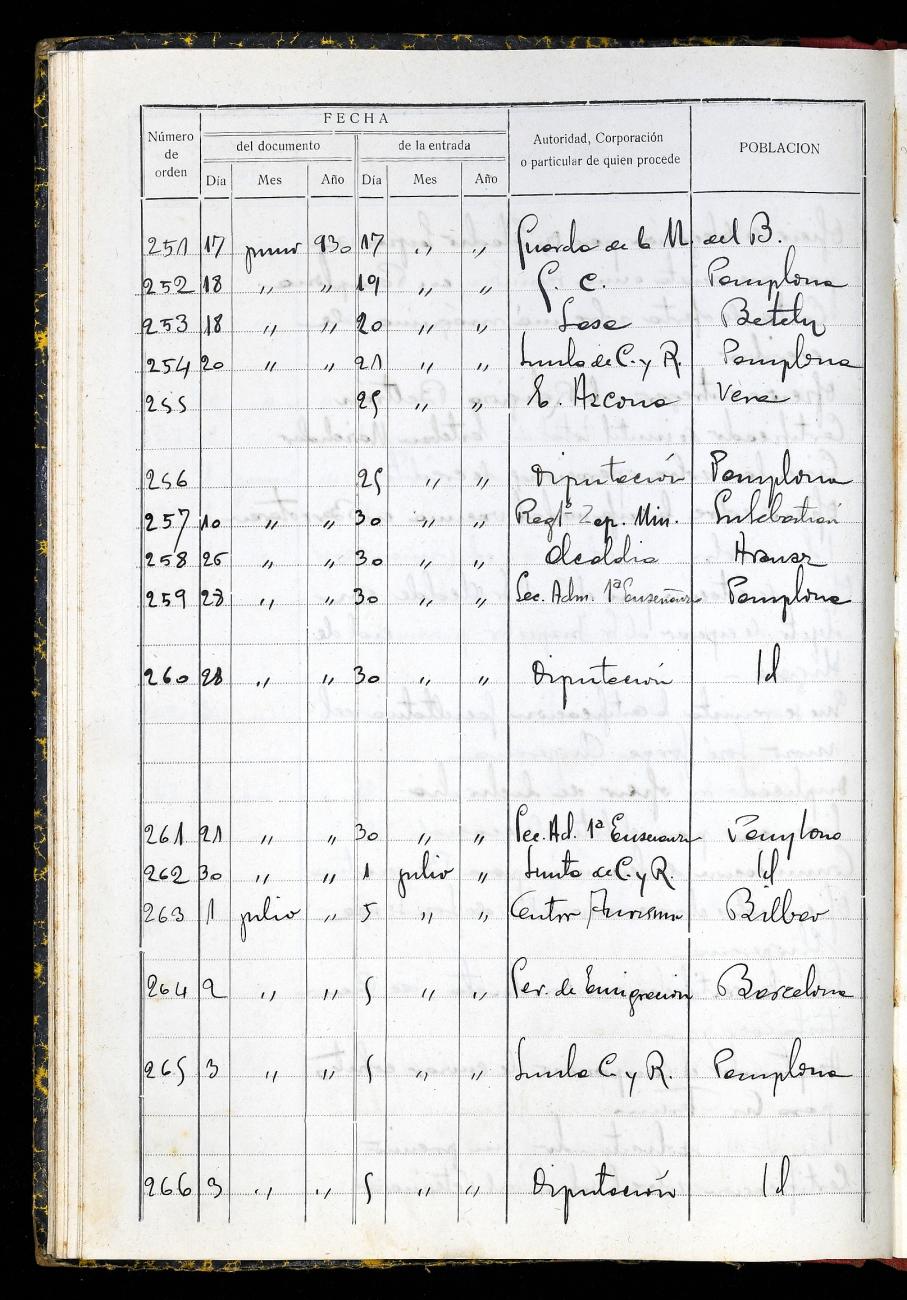 FECHA
Número de orden
del documento
de la entrada
Autoridad, Corporación o particular de quien procede
POBLACION
Día Mes Año Día Mes Año
251 17 junio 930 17 " " Guarda de la M. del B.
252 18 " " 19 " " G. C. Pamplona
253 18 " " 20 " " Betelu
254 20 " " 21 " " Junta de C. y R. Pamplona
255 25 " " E. Azcona Vera
256 25 " " Diputación Pamplona
257 10 " " 30 " " Regtº Zap. Min.
258 26 " " 30 " " Alcaldia Aranaz
259 28 " " 30 " " Sec. Adm. 1ª Enseñanza Pamplona
260 28 " " 30 " " Diputación Id
261 21 " " 30 " " Sec. Ad. 1ª Enseñanza Pamplona
262 30 " " 1 julio " Junta de C. y R. Id
263 1 julio " 5 " " Centro Turismo Bilbao
264 2 " " 5 " " Ser. de Emigracion Barcelona
265 3 " " 5 " " Junta C. y R. Pamplona
266 3 " " 5 " " Diputación Id